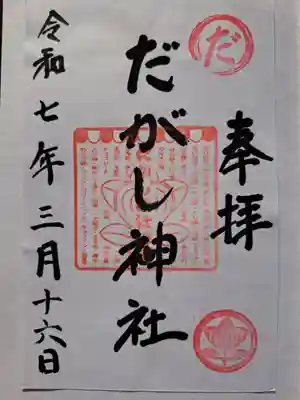 奉拝
だ
だがし神社
令和七年三月十六日